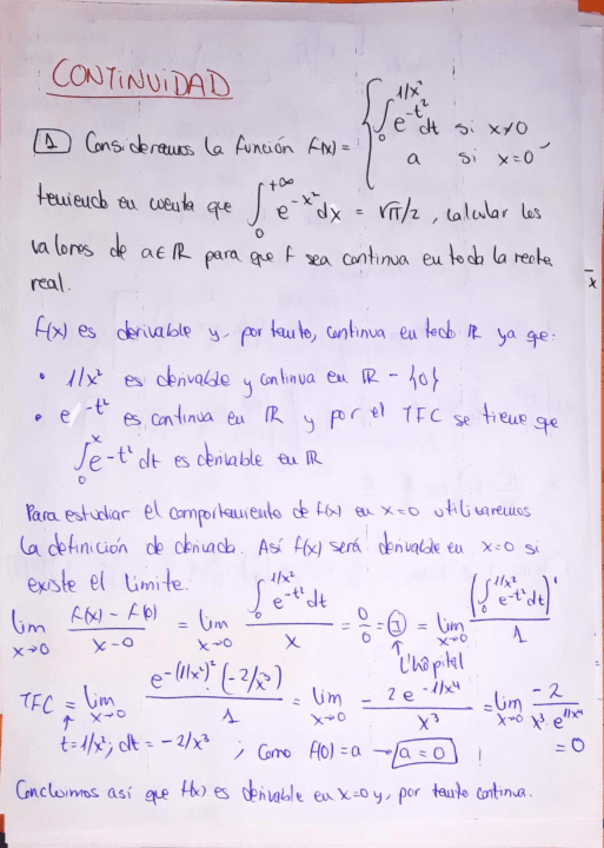 CONTINUIDAD
1 Consideramos la función f(x) = { ∫₀^{1/x²} e^{-t²} dt si x≠0
a si x=0
teniendo en cuenta que ∫₀^{+∞} e^{-x²} dx = √π/2, calcular los
valores de a∈ℝ para que f sea continua en toda la recta
real.
f(x) es derivable y, por tanto, continua en todo ℝ ya que:
• 1/x² es derivable y continua en ℝ - {0}
• e^{-t²} es continua en ℝ y por el TFC se tiene que
∫₀^x e^{-t²} dt es derivable en ℝ
Para estudiar el comportamiento de f(x) en x=0 utilizaremos
la definición de derivada. Así f(x) será derivable en x=0 si
existe el límite:
lim_{x→0} (f(x) - f(0))/(x-0) = lim_{x→0} (∫₀^{1/x²} e^{-t²} dt)/x = 0/0 = I = lim_{x→0} (∫₀^{1/x²} e^{-t²} dt)'/1
↑ L'hôpital
TFC = lim_{x→0} (e^{-(1/x²)²} (-2/x³))/1 = lim_{x→0} - (2e^{-1/x⁴})/x³ = lim_{x→0} (-2)/(x³ · e^{1/x⁴}) = 0
↑ t=1/x²; dt = -2/x³ ; Como f(0)=a → a=0
Concluimos así que f(x) es derivable en x=0 y, por tanto continua.
x